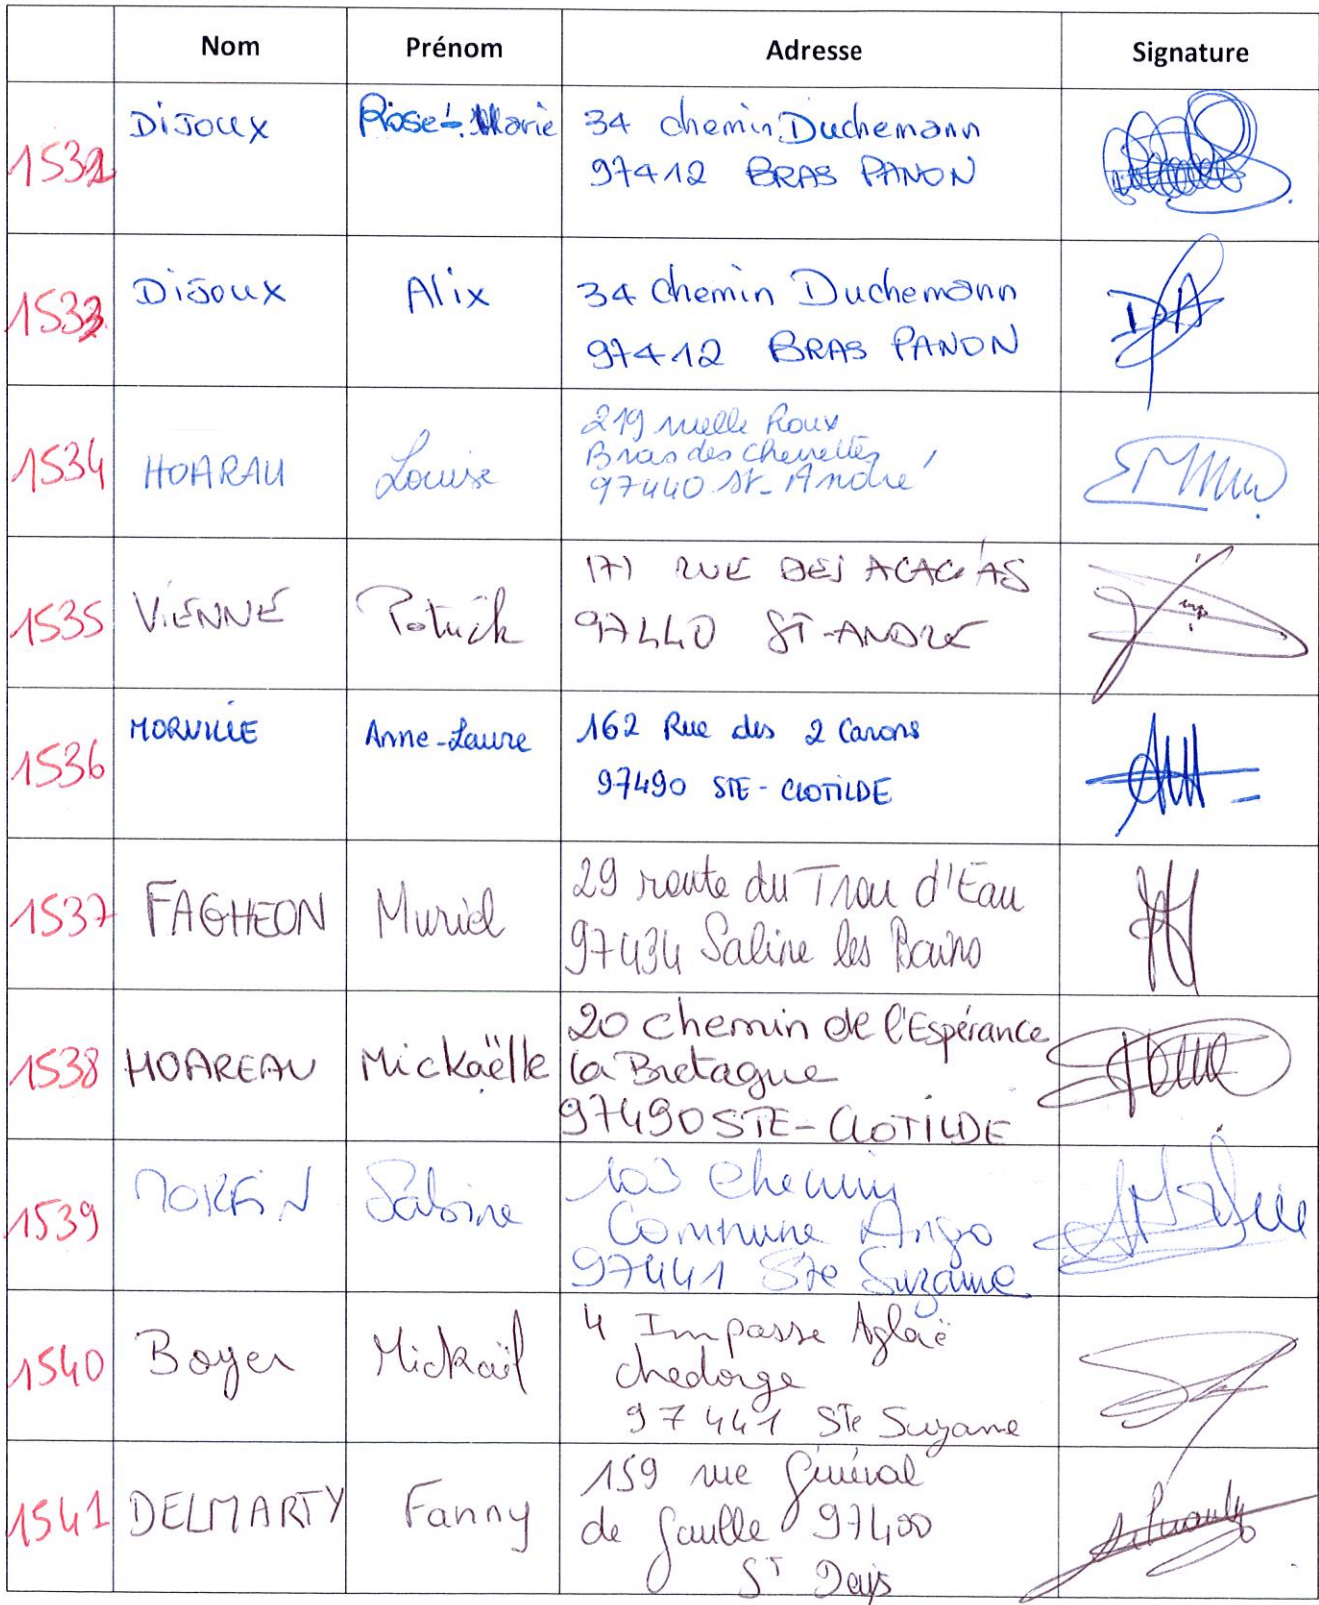 Nom Prénom Adresse Signature
1532 Dijoux Rose-Marie 34 chemin Duchemann
97412 BRAS PANON
1533 Dijoux Alix 34 chemin Duchemann
97412 BRAS PANON
1534 HOARAU Louise 219 ruelle Roux
Bras des chevrettes
97440 St-André
1535 VIENNE Patrick 171 RUE DES ACACIAS
97440 ST-ANDRE
1536 MORVILLE Anne-Laure 162 Rue des 2 Canons
97490 STE-CLOTILDE
1537 FAGHEON Muriel 29 route du Trou d'Eau
97434 Saline les Bains
1538 HOAREAU Mickaëlle 20 chemin de l'Espérance
la Bretagne
97490 STE-CLOTILDE
1539 Sabine 103 Chemin
Commune Ango
97441 Ste Suzanne
1540 Boyer Mickaël 4 Impasse Aglaë
chedorge
97441 Ste Suzanne
1541 DELMARTY Fanny 159 rue Général
de Gaulle 97400
ST Denis